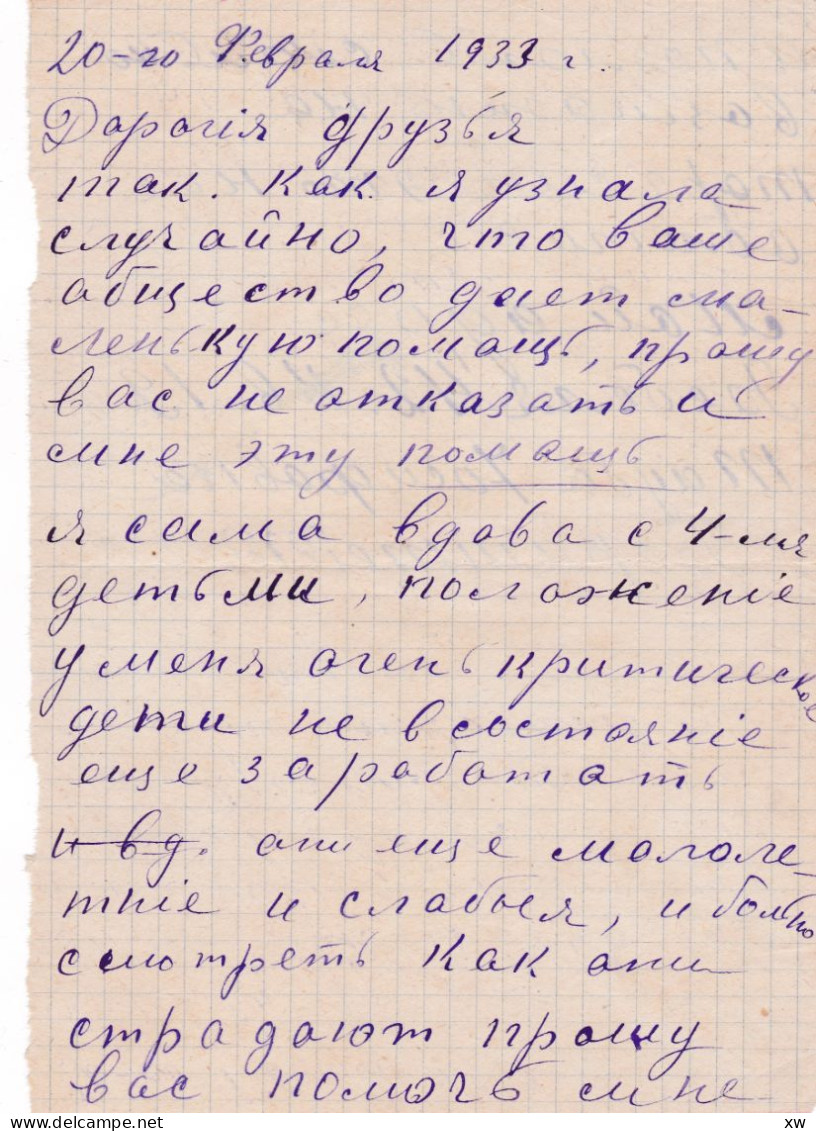 20-го Февраля 1933 г.
Дорогія друзья
так. как я узнала
случайно, что ваше
абщество дает ма-
ленькую помощь, прошу
вас не отказать и
мне эту помощь
я сама вдова с 4-мя
детьми, положеніе
у меня очень критическое
дети не в состояніе
еще заработать
и вд. они еще малоле-
тніе и слабыя, и больно
смотреть как они
страдают прошу
вас помочь мне-
xw